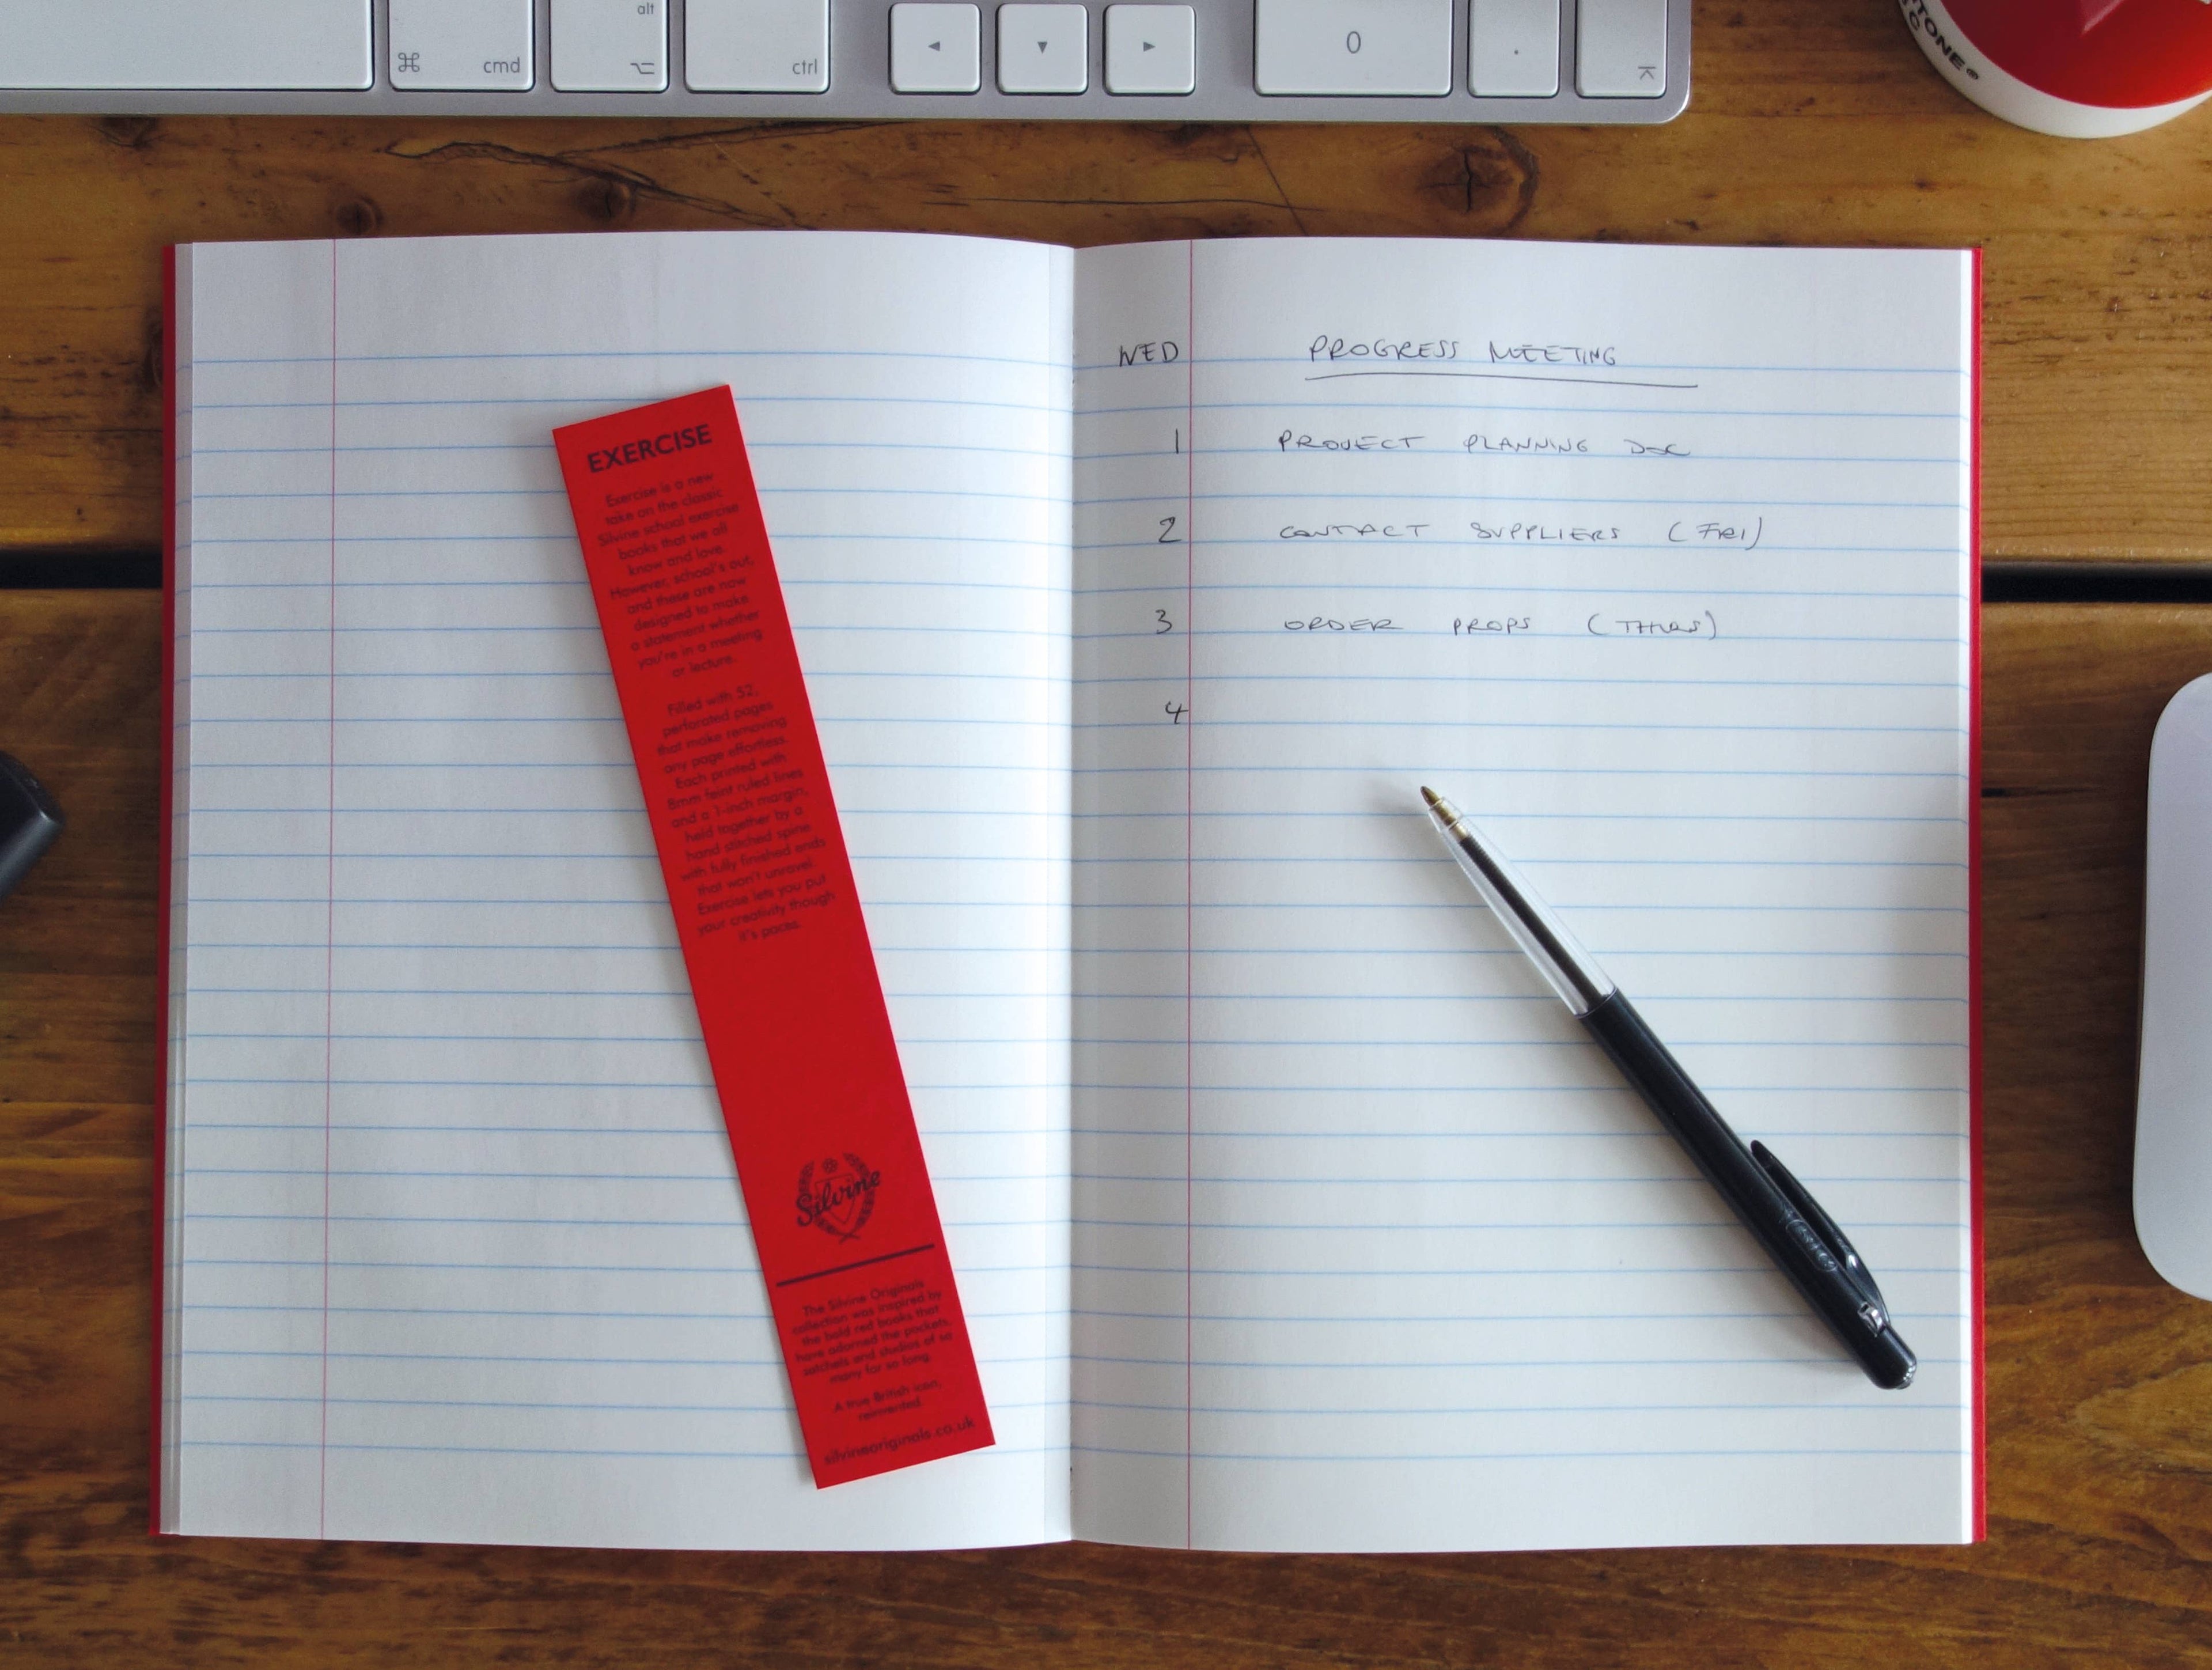 alt
⌘ cmd
ctrl
0
.
TONE®
WED PROGRESS MEETING
1 PROJECT PLANNING DOC
2 CONTACT SUPPLIERS (FRI)
3 ORDER PROPS (THURS)
4
EXERCISE
Exercise is a new
take on the classic
Silvine school exercise
books that we all
know and love.
However, school's out,
and these are now
designed to make
a statement whether
you're in a meeting
or lecture.
Filled with 52,
perforated pages
that make removing
any page effortless.
Each printed with
8mm feint ruled lines
and a 1-inch margin,
held together by a
hand stitched spine
with fully finished ends
that won't unravel.
Exercise lets you put
your creativity though
it's paces.
Silvine
The Silvine Originals
collection was inspired by
the bold red books that
have adorned the pockets,
satchels and studios of so
many for so long.
A true British icon,
reinvented.
silvineoriginals.co.uk